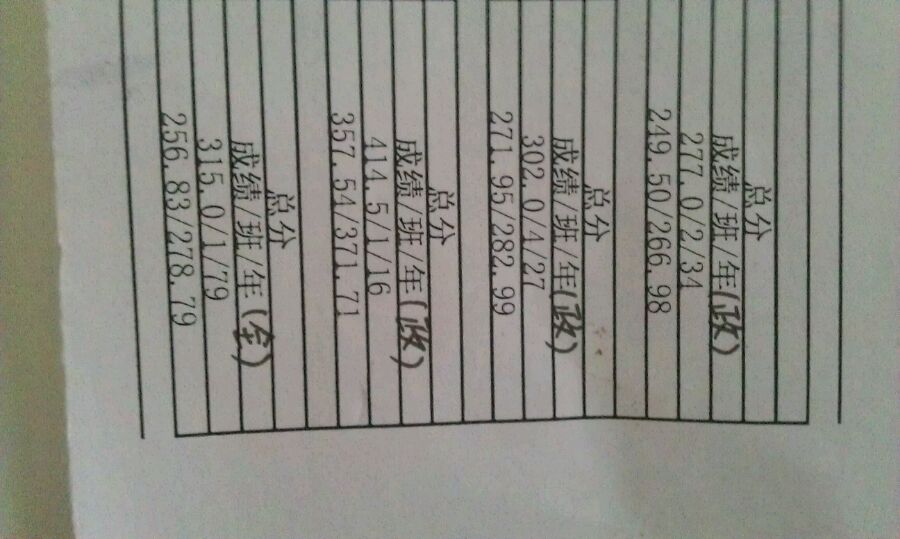 总分
成绩/班/年(政)
277.0/2/34
249.50/266.98
总分
成绩/班/年(政)
302.0/4/27
271.95/282.99
总分
成绩/班/年(政)
414.5/1/16
357.54/371.71
总分
成绩/班/年(全)
315.0/1/79
256.83/278.79